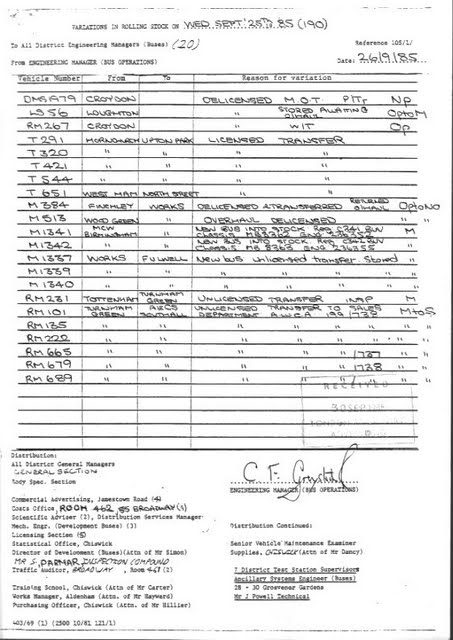 VARIATIONS IN ROLLING STOCK ON WED SEPT 25TH 85 (190)
To All District Engineering Managers (Buses) (20)
Reference 105/1/
From ENGINEERING MANAGER (BUS OPERATIONS)
Date: 26/9/85
Vehicle Number From To Reason for variation
DMS1979 CROYDON DELICENSED M.O.T. Np
LS56 LOUGHTON " STORED AWAITING O/HAUL Opto M
RM267 CROYDON " WIT Op
T291 HORNCHURCH UPTON PARK LICENSED TRANSFER
T320 " " " "
T421 " " " "
T544 " " " "
T651 WEST HAM NORTH STREET " "
M384 FINCHLEY WORKS DELICENSED & TRANSFERRED O/HAUL Opto No
M513 WOOD GREEN OVERHAUL DELICENSED
M1341 MCW BIRMINGHAM NEW BUS INTO STOCK REG C341 BUV M
M1342 " " NEW BUS INTO STOCK REG C342 BUV "
M1337 WORKS FULWELL New bus unlicensed transfer. Stored "
M1339 " " " " " " "
M1340 " " " " " " "
RM231 TOTTENHAM TURNHAM GREEN UNLICENSED TRANSFER INSP M
RM101 TURNHAM GREEN AECS SOUTHALL UNLICENSED TRANSFER TO SALES DEPARTMENT A.W.C.A. 199 1738 M to S
RM135 " " " " " "
RM222 " " " " " "
RM665 " " " " 1737 "
RM679 " " " " 1738 "
RM689 " " " " " "
RECEIVED
Distribution:
All District General Managers
GENERAL SECTION
Body Spec. Section
ENGINEERING MANAGER (BUS OPERATIONS)
Commercial Advertising, Jamestown Road (4)
Costs Office, ROOM 462 55 BROADWAY (1)
Scientific Adviser (2), Distribution Services Manager
Mech. Engr. (Development Buses) (3)
Distribution Continued:
Licensing Section (5)
Statistical Office, Chiswick
Senior Vehicle Maintenance Examiner
Director of Development (Buses)(Attn of Mr Simon)
Supplies, CHISWICK (Attn of Mr Dancy)
Mr S. PARMAR INSPECTION COMPOUND
Traffic Auditor, BROADWAY, Room (2)
7 District Test Station Supervisors
Ancillary Systems Engineer (Buses)
Training School, Chiswick (Attn of Mr Carter)
28 - 30 Grosvenor Gardens
Works Manager, Aldenham (Attn. of Mr Hayward)
Mr J Powell Technical
Purchasing Officer, Chiswick (Attn. of Mr Hillier)
403/69 (1) (2500 10/81 121/1)